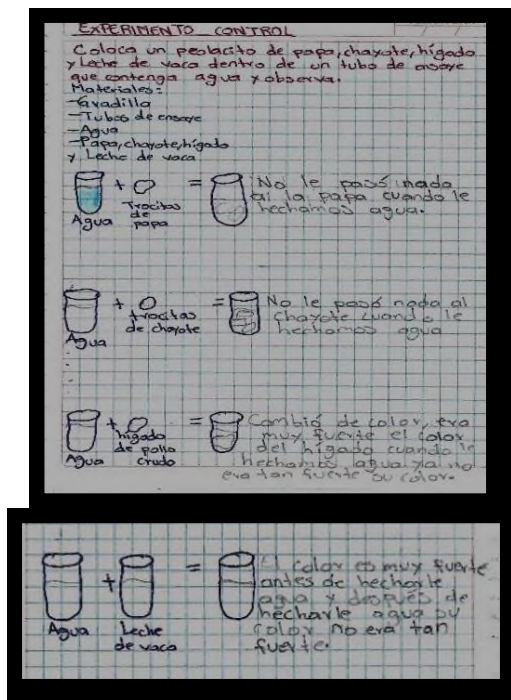 EXPERIMENTO CONTROL
Coloca un pedacito de papa, chayote, hígado
y Leche de vaca dentro de un tubo de ensaye
que contenga agua y observa.
Materiales:
-Gradilla
-Tubos de ensaye
-Agua
-Papa, chayote, hígado
y Leche de vaca
+ =
No le pasó nada
a la papa cuando le
hechamos agua.
Agua
Trocitos
de
papa
+ =
No le pasó nada al
chayote cuando le
hechamos agua
Agua
trocitos
de chayote
+ =
Cambió de color, era
muy fuerte el color
del hígado cuando le
hechamos agua ya no
era tan fuerte su color.
Agua
hígado
de pollo
crudo
+ =
El color es muy fuerte
antes de hecharle
agua y después de
hecharle agua su
color no era tan
fuerte.
Agua
Leche
de vaca